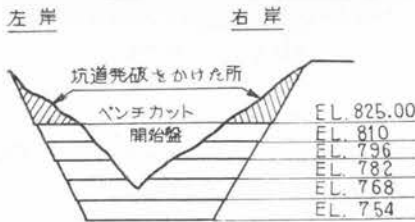 左岸
右岸
坑道発破をかけた所
ベンチカット
開始盤
EL.825.00
EL.810
EL.796
EL.782
EL.768
EL.754